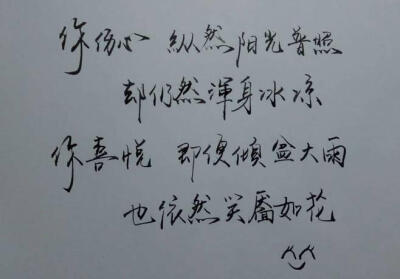 你伤心 纵然阳光普照
却仍然浑身冰凉
你喜悦 即便倾盆大雨
也依然笑靥如花